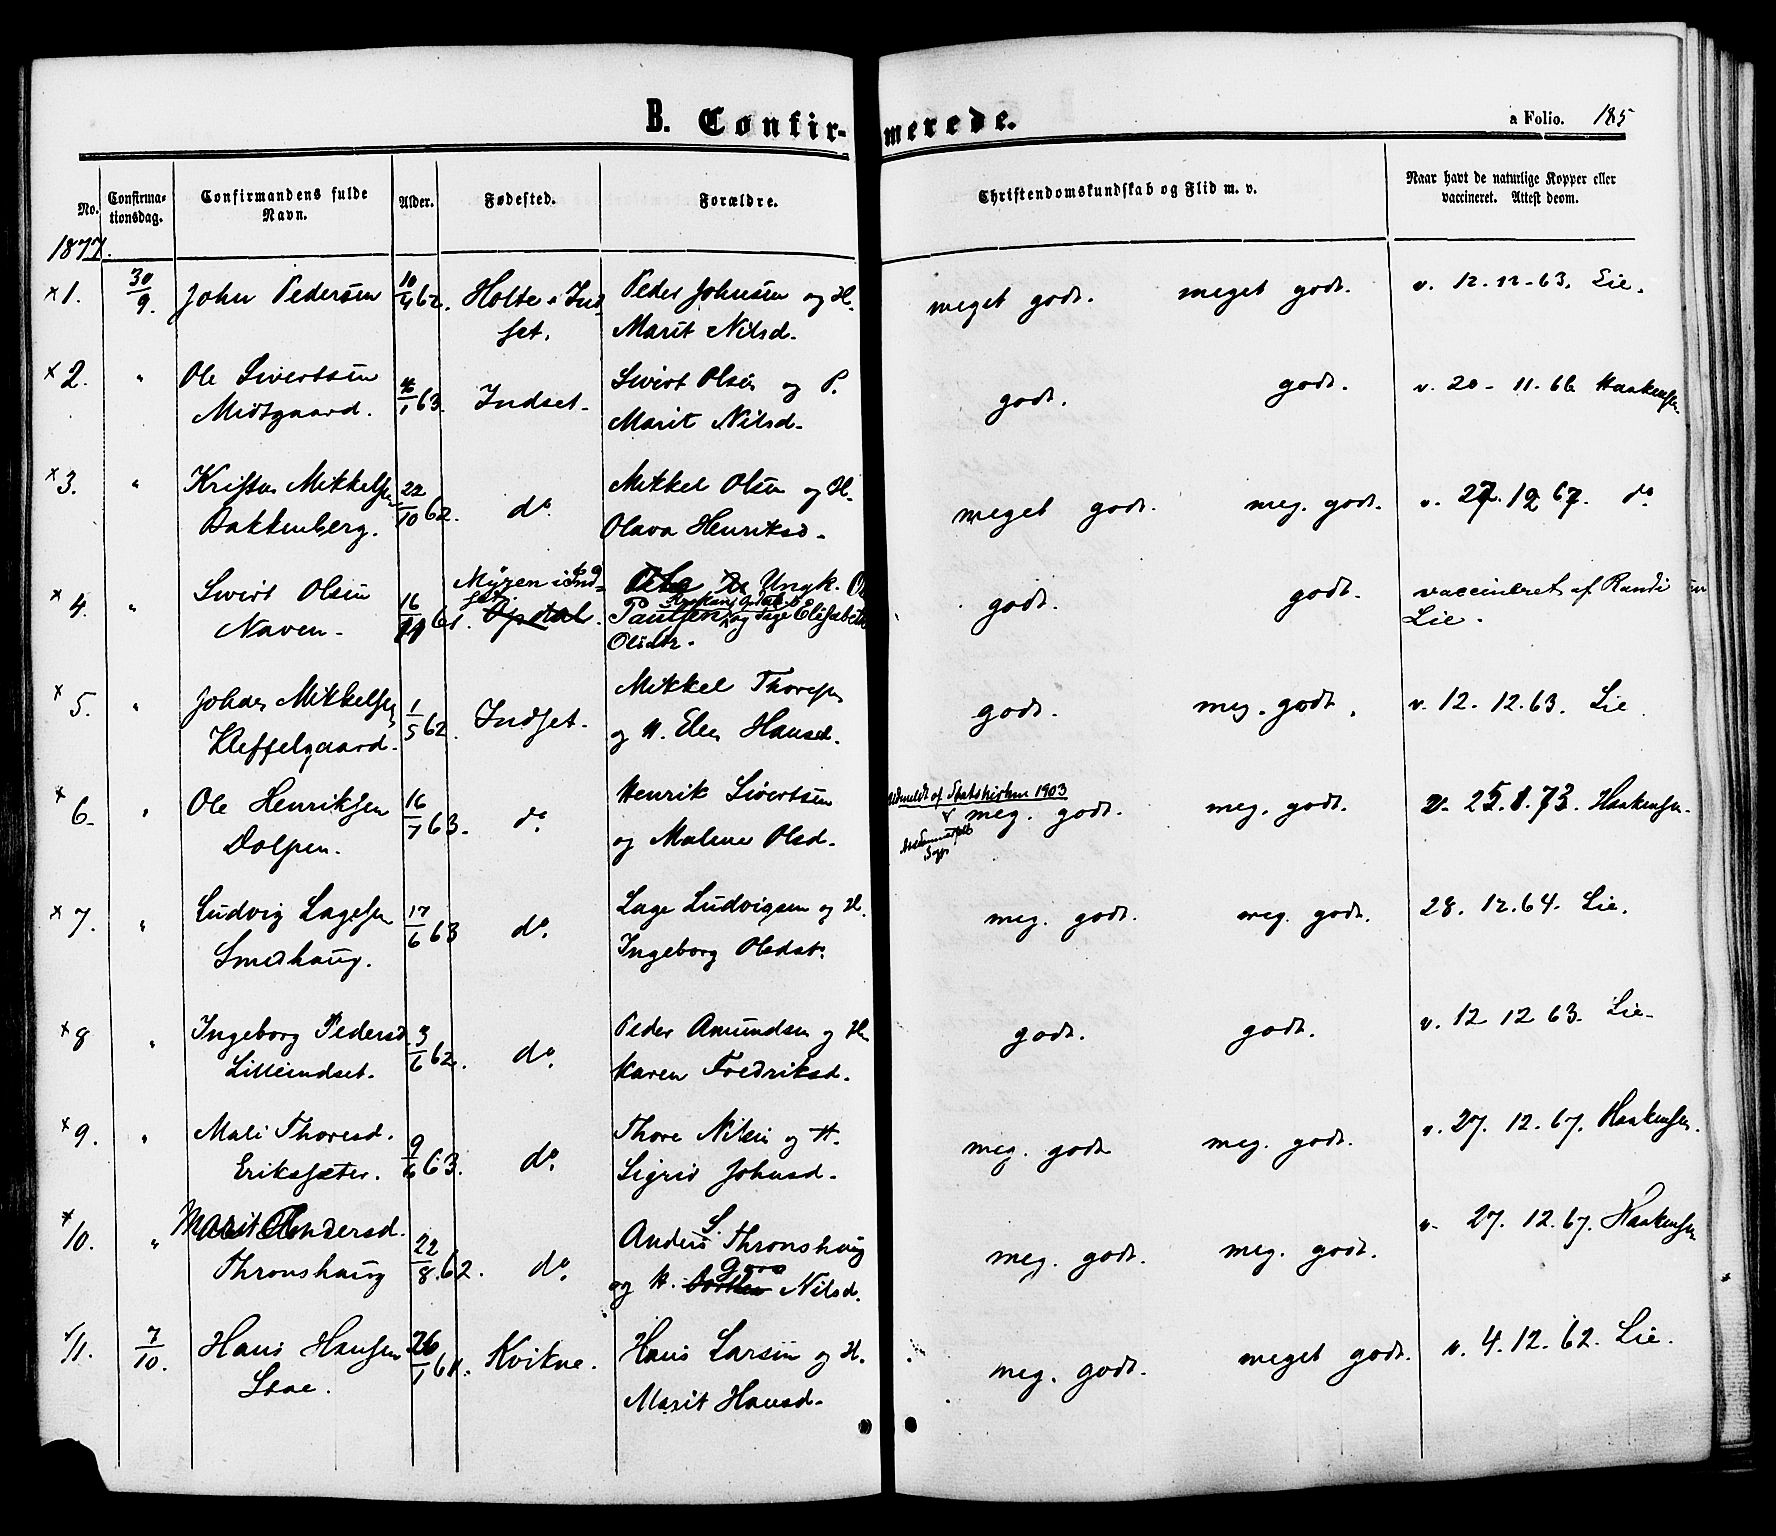 B. Confirmerede.
a Folio. 185
No. Confirmationsdag. Confirmandens fulde Navn. Alder. Fødested. Forældre. Christendomskundskab og Flid m. v. Naar havt de naturlige Kopper eller vaccineret. Attest deom.
1877.
x1. 30/9. John Pedersen 10/4 62. Holte i Ind Peder Johnsen og H. meget godt. meget godt. v. 12.12.63. Lie.
set. Marit Nilsd.
x2. " Ole Sivertsen /1 63. Indset. Sivert Olsen og P. godt. godt. v. 20-11.66 Haakensen
Midtgaard. Marit Nilsd.
x3. " Mikkelsen 22/10 62. do. Mikkel Olsen og H. meget godt. meg. godt. v. 27.12 67. do
Bakkenberg. Olava Henriksd.
x4. " Sivert Olsen 16/11 61. Myren i Ind- Ungk. godt. godt. vaccineret af Randi
Naven. set. Opdal. Paulsen og Pige Elisabeth Lie.
Olsdtr.
x5. " Mikkelsen 1/5 62. Indset. Mikkel Thoresen godt. meg. godt. v. 12. 12.63. Lie
Kleffelgaard. og H. Elen Hansd.
x6. " Ole Henriksen 16/7 63. do. Henrik Sivertsen Udmeldt af Statskirken 1903 meg. godt. meg. godt. v. 25.8.73. Haakensen
Dolpen. og Malene Olsd.
x7. " Ludvig Lagesen 17/6 63 do. Lage Ludvigsen og H. meg. godt. meg. godt. 28. 12.64. Lie.
Smedhaug. Ingeborg Olsdt.
x8 " Ingeborg Pedersd. 3/6 62. do. Peder Amundsen og H. godt. godt. v. 12 12 63. Lie
Lilleindset. Karen Fredriksd.
x9. " Mali Thoresd. 9/6 63. do. Thore Nilsen og H. meg. godt meg. godt. v. 27. 12. 67. Haakensen.
Eriksæter. Sigrid Johnsd.
x10. " Marit Andersd. 22/8. 62. do. Anders S. Thronshaug meg. godt. meg. godt. v. 27. 12. 67. Haakensen
Thronshaug og H. Goro Nilsd.
11. 7/10. Hans Hansen 26/1 61. Kvikne. Hans Larsen og H. meg. godt. meget godt. v. 4.12. 62. Lie.
Stae. Marit Hansd.